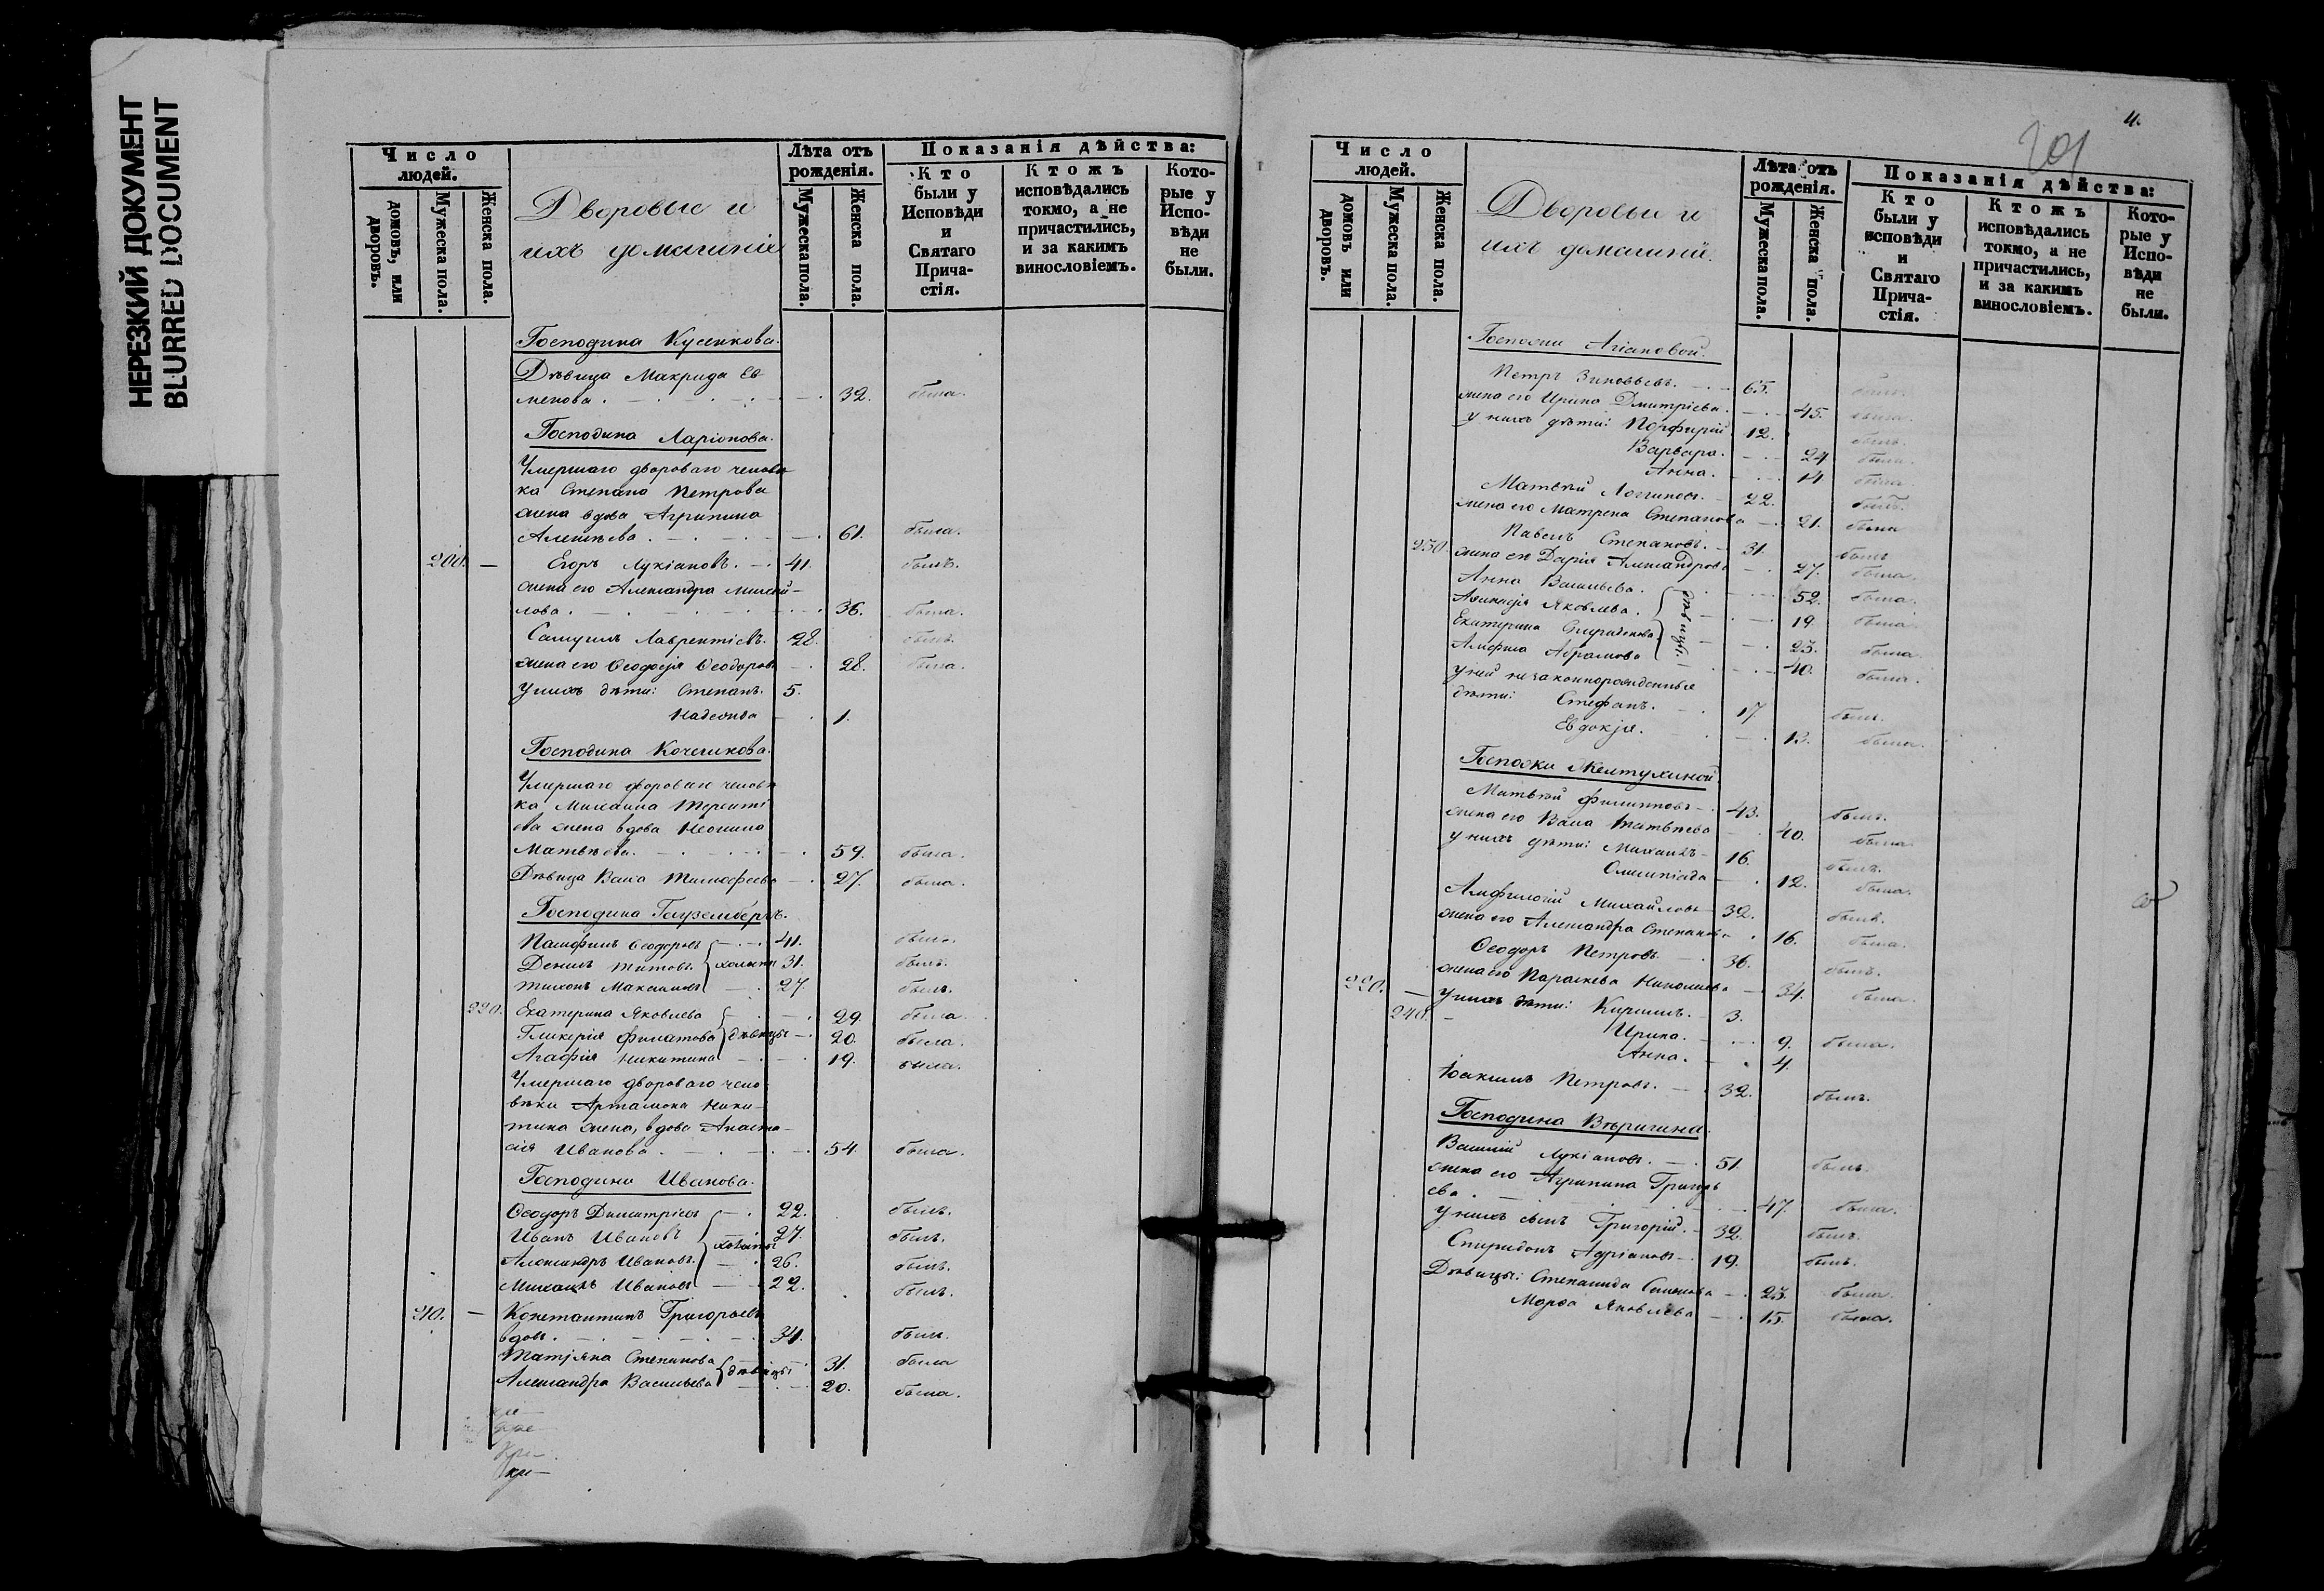 НЕРЕЗКИЙ ДОКУМЕНТ
BLURRED DOCUMENT
Число людей.
домовъ, или дворовъ.
Мужеска пола.
Женска пола.
Дворовые и
ихъ домашнiе
Лѣта отъ рожденiя.
Мужеска пола.
Женска пола.
Показанiя дѣйства:
Кто были у Исповѣди и Святаго Причастiя.
Ктожъ исповѣдались токмо, а не причастились, и за какимъ винословiемъ.
Которые у Исповѣди не были.
Господина
Дѣвица Макрида Ев
. 32. была.
Господина Ларiонова.
Умершаго двороваго человѣ
ка Степана Петрова
жена вдова Агрипина
Алексѣева. 61. была.
200. — Егоръ Лукiановъ. 41. былъ.
жена его Александра Михай-
лова. 36. была.
Самуилъ Лаврентiевъ. 28. былъ.
жена его Ѳеодосiя Ѳеодоров 28. была.
У нихъ дѣти: Степанъ. 5.
Надежда 1.
Господина
Умершаго двороваго человѣ
ка Михаила Терентi
ева жена вдова Неонила
Матвѣева. 59. была.
Дѣвица Васса Тимофеева 27. была.
Господина
Памфилъ Ѳеодоровъ 41. былъ.
Титовъ холосты 31. былъ.
Тихонъ Максимовъ 27. былъ.
220. Екатерина Яковлева 29. была.
Гликерiя Филатова дѣвицы 20. была.
Агафiя Никитина 19. была.
Умершаго двороваго чело
вѣка Артамона Ники-
тина жена, вдова Анаста-
сiя Иванова. 54. была.
Господина Иванова.
Ѳеодоръ Димитрiевъ 22. былъ.
Иванъ Ивановъ холосты 27. былъ.
Александръ Ивановъ 26. былъ.
Михаилъ Ивановъ 22. былъ.
210. — Константинъ Григорьевъ
вдов. 34. былъ.
Татiяна Степанова дѣвицы 31. была
Александра Васильева 20. была.
4.
201
Число людей.
домовъ или дворовъ.
Мужеска пола.
Женска пола.
Дворовыи и
ихъ домашнiй.
Лѣта отъ рожденiя.
Мужеска пола.
Женска пола.
Показанiя дѣйства:
Кто были у исповѣди и Святаго Причастiя.
Ктожъ исповѣдались токмо, а не причастились, и за какимъ винословiемъ.
Которые у Исповѣди не были.
Госпожи
Петръ Зиновьевъ. 65. былъ.
жена его Ирина Дмитрiева. 45. была.
у нихъ дѣти: Порфирiй 12. былъ.
Варвара. 24 была.
Анна. 14 была.
Матвѣй Логгиновъ. 22. былъ.
жена его Матрена Степанова 21. была
Павелъ Степановъ. 31. былъ
230. жена его Дарiя Александрова 27. была.
Анна Васильева. дѣвицы. 52. была.
Яковлева. 19. была.
Екатерина 23. была
Абрамова 40. была.
у ней незаконнорожденные
дѣти: Стефанъ. 17. былъ.
Евдокiя. 13. была.
Госпожи Желтухиной
Матвѣй Филипповъ 43. былъ.
жена его Васса Матвѣева 40. была
у нихъ дѣти: Михаилъ 16. былъ.
Олимпiада 12. была.
Амфилогiй Михайловъ 32. былъ.
жена его Александра Степанова 16. была.
Ѳеодоръ Петровъ 36. былъ.
жена его Параскева Николаева 34. была.
220. — У нихъ дѣти: Кириллъ. 3.
240. — Ирина. 9. была.
Анна. 4.
Iоакимъ Петровъ. 32. былъ.
Господина Вѣригина.
Василiй Лукiановъ. 51. былъ.
жена его Агрипина Григорь
ева. 47. была.
У нихъ сынъ Григорiй. 32. былъ.
Спиридонъ Адрiановъ 19. былъ.
Дѣвицы: Степанида Семенова 23. была.
Марѳа Яковлева 15. была.